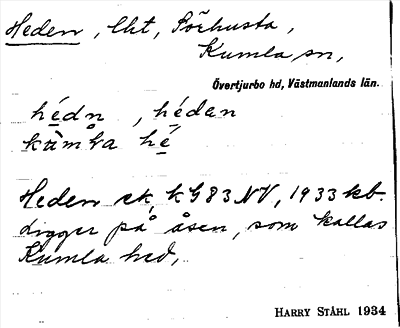 Heden, lht, Sörhusta,
Kumla sn,
Övertjurbo hd, Västmanlands län.
hédn, hédan
kùmla hé
Heden ek, kG83NV, 1933 kb.
digger på åsen, som kallas
Kumla hed,
HARRY STÅHL 1934